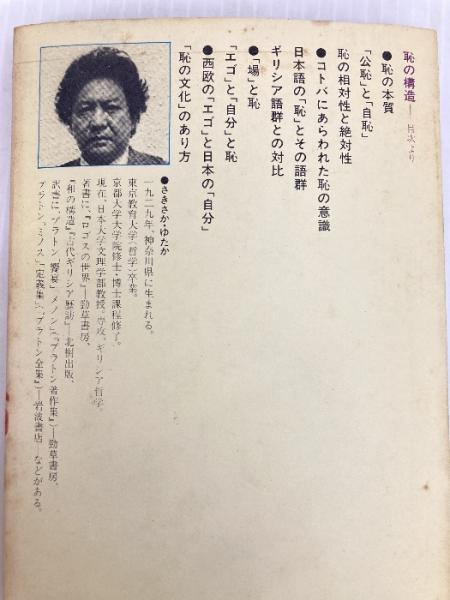 恥の構造――目次より
●恥の本質
「公恥」と「自恥」
恥の相対性と絶対性
●コトバにあらわれた恥の意識
日本語の「恥」とその語群
ギリシア語群との対比
●「場」と恥
「エゴ」と「自分」と恥
●西欧の「エゴ」と日本の「自分」
「恥の文化」のあり方
●さきさか・ゆたか
一九二九年、神奈川県に生まれる。
東京教育大学(哲学)卒業。
京都大学大学院修士・博士課程修了。
現在、日本大学文理学部教授。専攻、ギリシア哲学。
著書に、『ロゴスの世界』―勁草書房、
『和の構造』『古代ギリシア歴訪』―北樹出版、
訳書に、プラトン『饗宴』『メノン』(『プラトン著作集』)―勁草書房、
プラトン『ミノス』『定義集』(『プラトン全集』)―岩波書店―などがある。